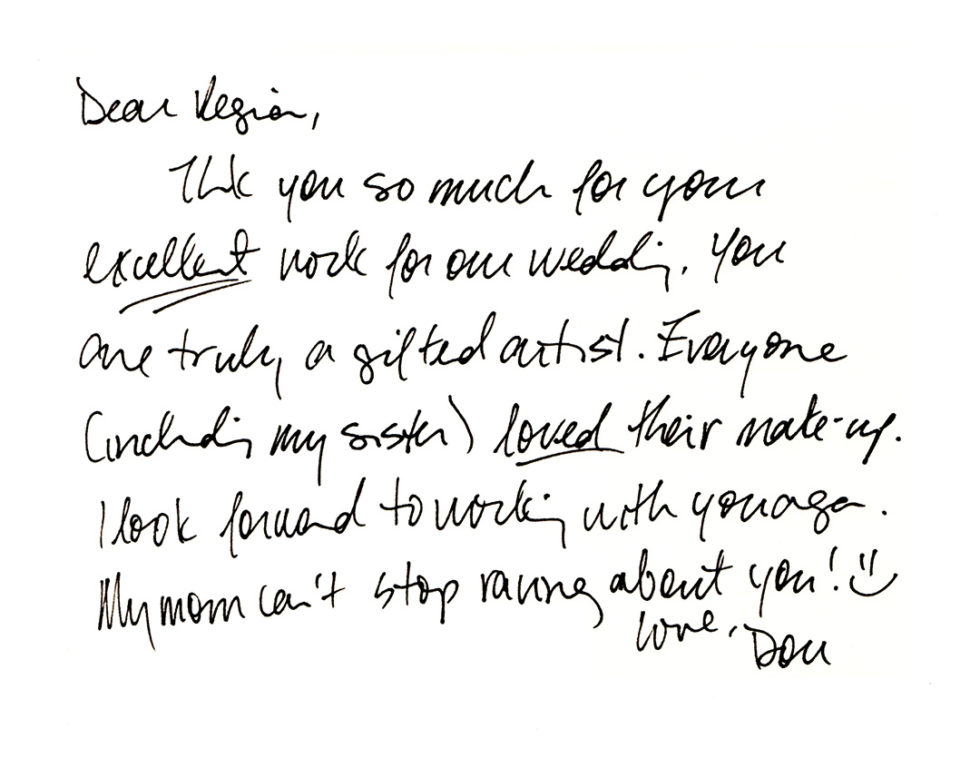 Dear Region,
Thk you so much for your
excellent work for our wedding. You
are truly a gifted artist. Everyone
(including my sister) loved their make-up.
I look forward to working with you again.
My mom can't stop raving about you! :)
Love, Don